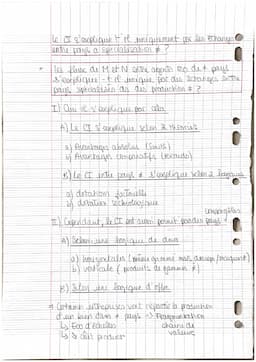 Le CI s'explique t'il uniquement par les échanges
entre pays à spécialisation ≠ ?
les flux de M et X entre agents éco de ≠ pays
s'explique-t-il unique par des échanges entre
pays spécialisés ds des production ≠ ?
I) Oui il s'explique par cela
A) Le CI s'explique selon 2 théories
a) Avantages absolus (Smith)
b) Avantages comparatifs (Ricardo)
B) le CI entre pays ≠ s'explique selon 2
a) dotation factorielle
b) dotation technologique
comparables
II) Cependant, le CI est aussi permis par des pays
A) Selon une logique de
a) horizontale (même gamme mais
b) verticale (produits de gamme ≠)
B) Selon une logique d'offre
Certaines entreprises vont répartir la production
d'un bien dans ≠ pays → Fragmentation
↳ Eco d'échelles chaîne de
↳ ↘ coût production valeurs